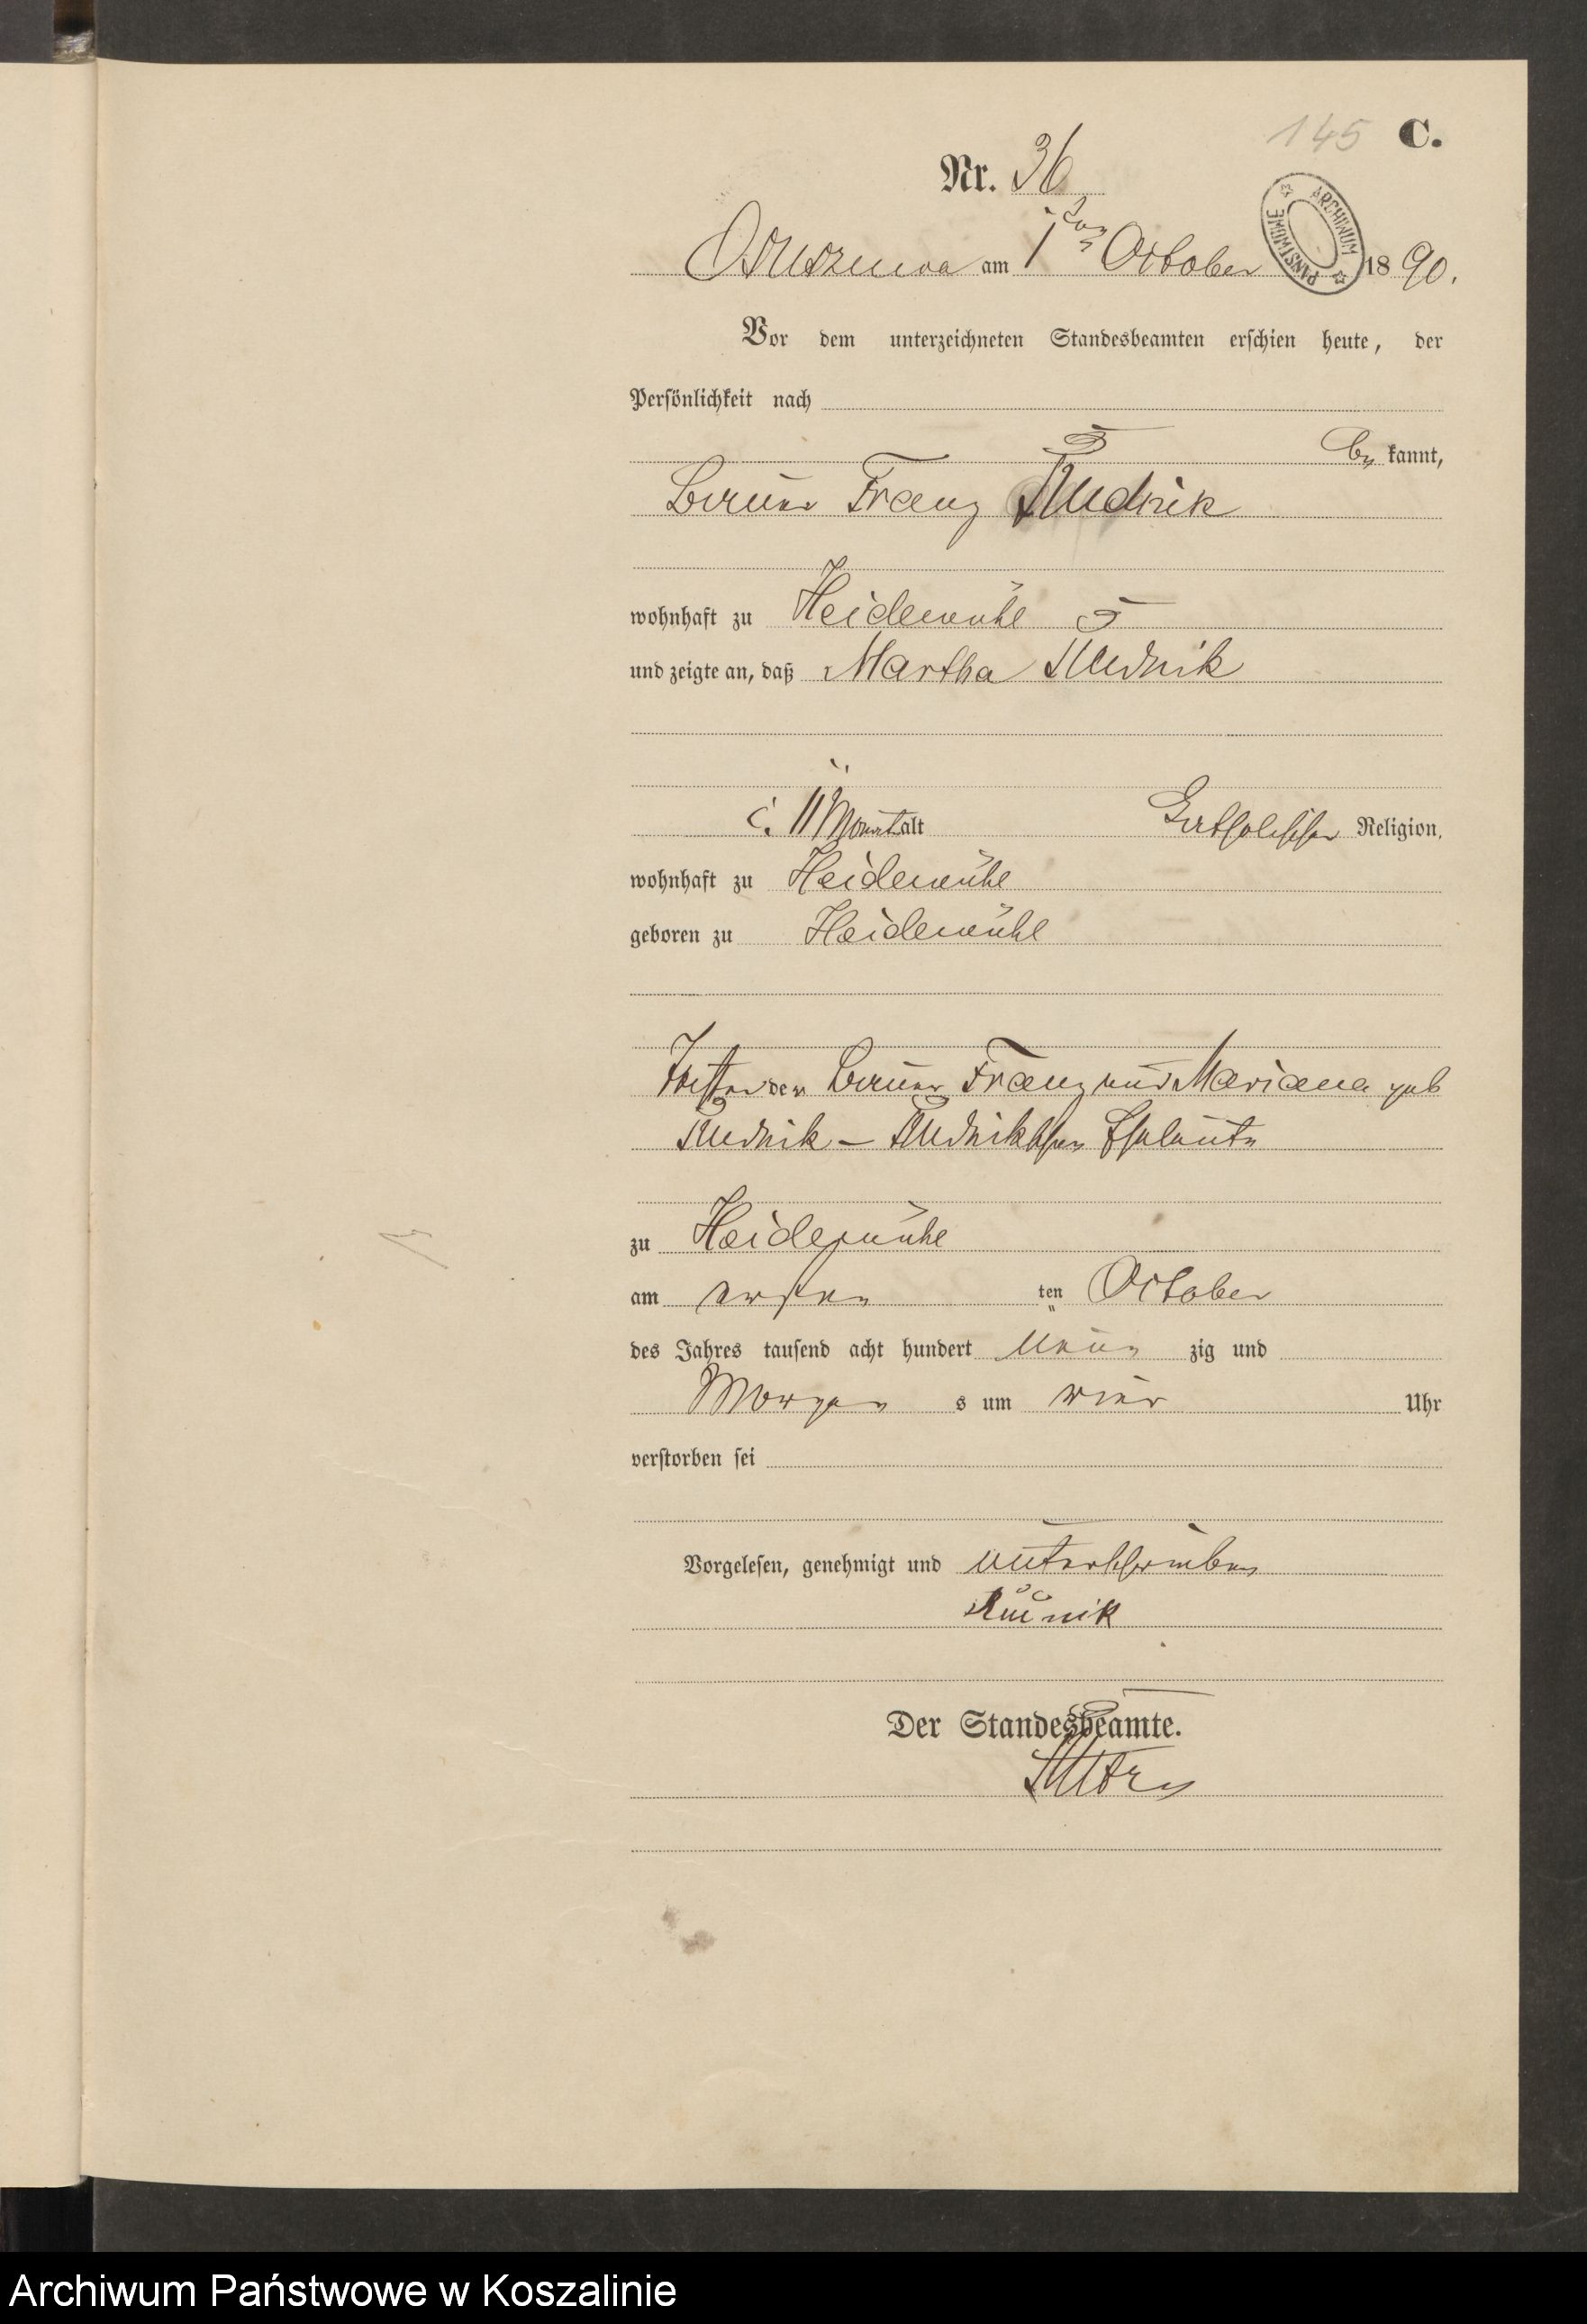 145 C.
Nr. 36
Ossusznica am 1ten October 1890.
ARCHIWUM PAŃSTWOWE
Vor dem unterzeichneten Standesbeamten erschien heute, der
Persönlichkeit nach
be kannt,
Bauer Franz Rudnik
wohnhaft zu Heidemühl
und zeigte an, daß Martha Rudnik
11 Monat alt katholischer Religion,
wohnhaft zu Heidemühl
geboren zu Heidemühl
Tochter der Bauer Franz und Mariana geb
Rudnik – Rudnikschen Eheleute
zu Heidemühl
am ersten ten October
des Jahres tausend acht hundert neun zig und
Morgen s um vier Uhr
verstorben sei
Vorgelesen, genehmigt und unterschrieben
Rudnik
Der Standesbeamte.
Archiwum Państwowe w Koszalinie